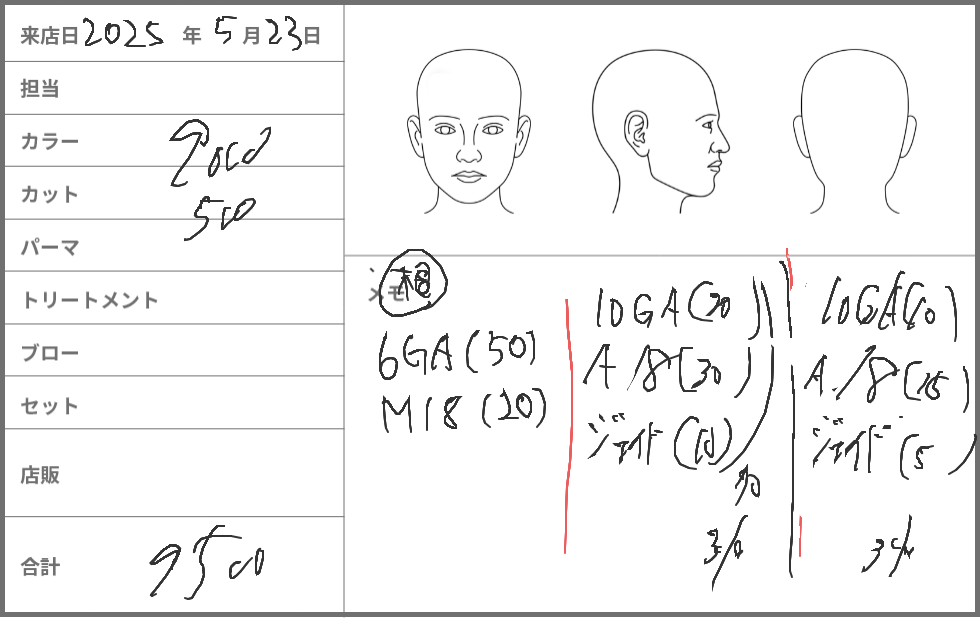 来店日 2025 年 5 月 23 日
担当
カラー 9000
カット 500
パーマ
トリートメント
ブロー
セット
店販
合計 9500
メモ 根
6GA (50)
M18 (20)
10GA (20)
A/8 (30)
ジェイド (10)
10GA (10)
A/8 (15)
ジェイド (5)